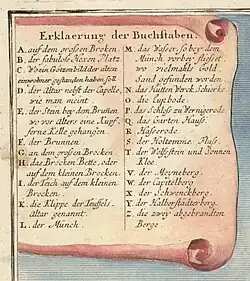 Erklaerung der Buchstaben.
A. auf dem großen Broken.
B. der fabulose Hexen Platz.
C. Wo ein Götzenbild der alten
einwohner gestanden haben soll
D. der Altar nebst der Capelle,
wie man meint.
E. der Stein bey dem Brunen
wo vor alters eine Kupf-
ferne Kelle gehangen.
F. der Brunnen.
G. an dem großen Brocken.
H. das Brocken Bette, oder
auf dem kleinen Brocken.
I. der Teich auf dem kleinen
Brocken.
K. die Klippe der Teuffels-
altar genannt.
L. der Münch.
M. das Waßer, so bey dem
Münch vorbey fliest
wo vielmahls Gold
Sand gefunden worden
N. das Hütten Werck Schirke
O. die Luybode.
P. das Schloß zu Vernigerode
Q. das Garten Hauß.
R. Haßerode.
S. der Holtzemme Fluß.
T. der Wolffstein und Sonnen
Klee.
V. der Meyneberg.
W. der Capitelberg
X. der Schwenckberg.
Y. der Halberstädterberg
Z. die zwey abgebrandten
Berge.